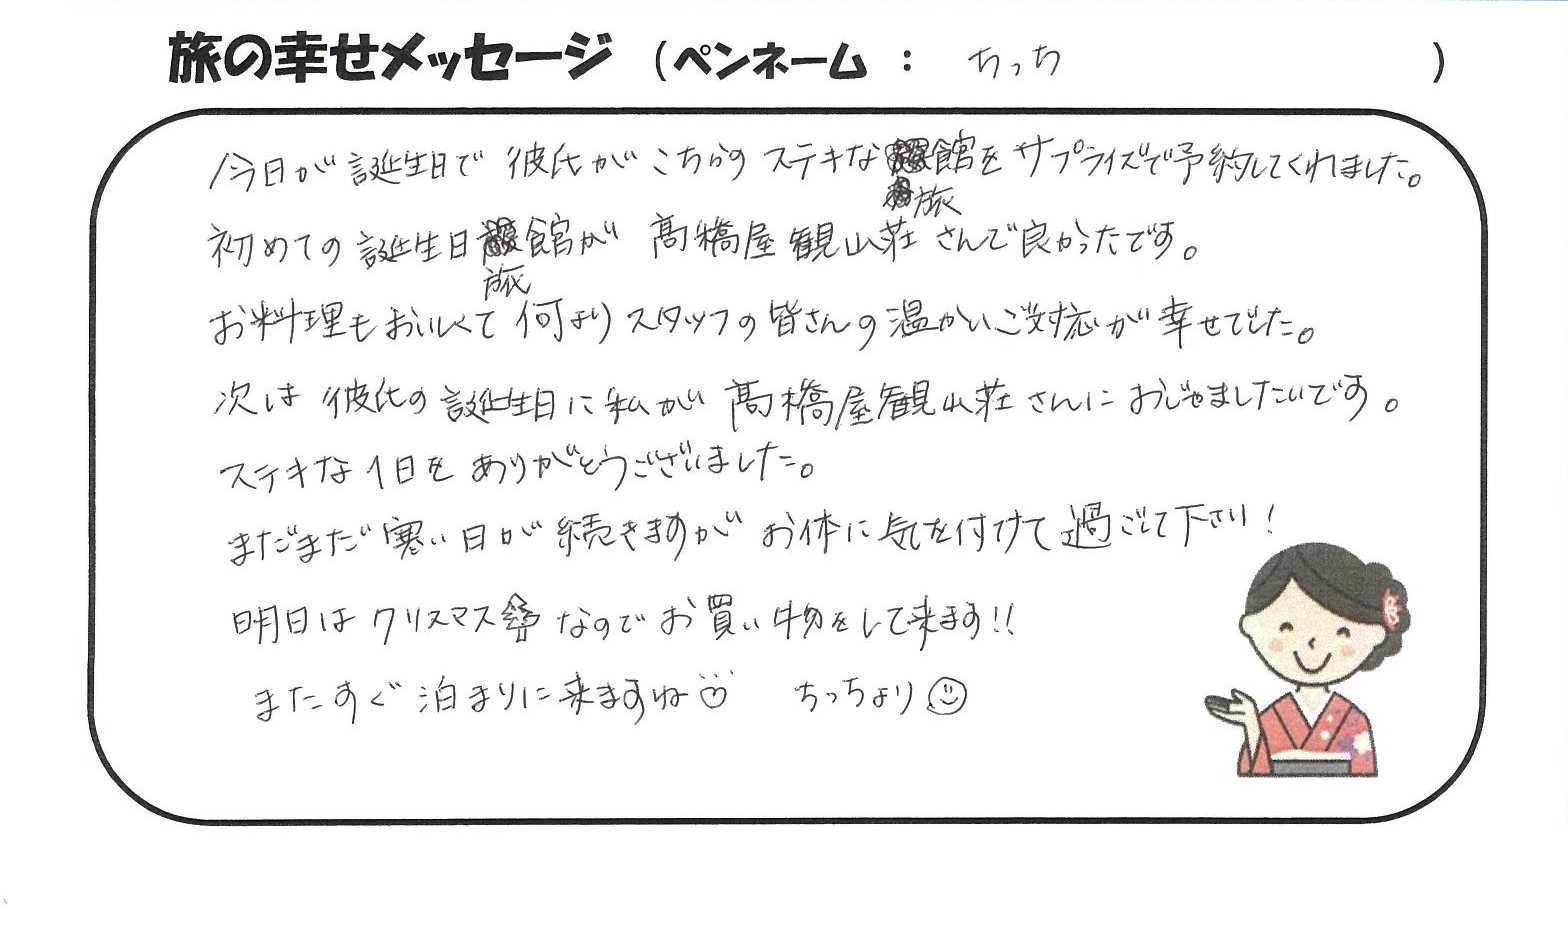 旅の幸せメッセージ (ペンネーム : ちっち )
今日が誕生日で彼氏がこちらのステキな旅館をサプライズで予約してくれました。
初めての誕生日旅館が髙橋屋観山荘さんで良かったです。
お料理もおいしくて何よりスタッフの皆さんの温かいご対応が幸せでした。
次は彼氏の誕生日に私が髙橋屋観山荘さんにおじゃましたいです。
ステキな1日をありがとうございました。
まだまだ寒い日が続きますがお体に気を付けて過ごして下さい!
明日はクリスマスなのでお買い物をして来ます!!
またすぐ泊まりに来ますね ちっちより